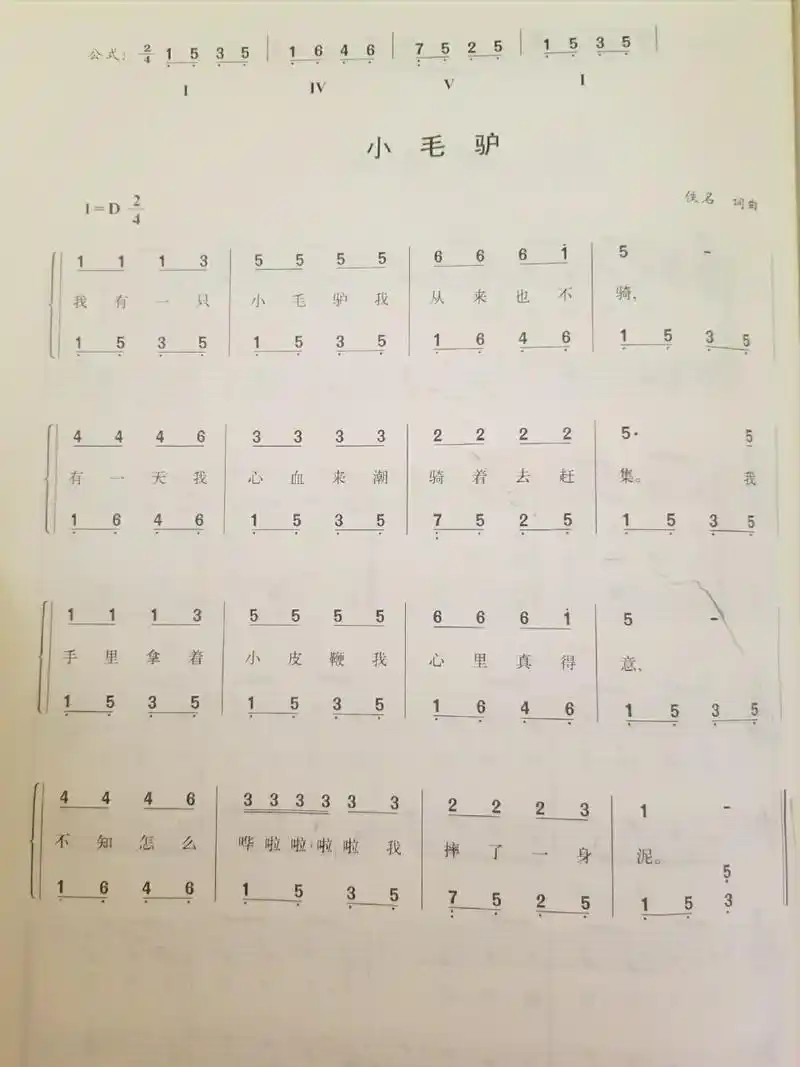 公式: 2/4 1 5 3 5 | 1 6 4 6 | 7 5 2 5 | 1 5 3 5 |
I IV V I
小毛驴
1=D 2/4
佚名 词曲
1 1 1 3 | 5 5 5 5 | 6 6 6 i | 5 -
我有一只 小毛驴我 从来也不 骑,
1 5 3 5 | 1 5 3 5 | 1 6 4 6 | 1 5 3 5
4 4 4 6 | 3 3 3 3 | 2 2 2 2 | 5· 5
有一天我 心血来潮 骑着去赶 集。 我
1 6 4 6 | 1 5 3 5 | 7 5 2 5 | 1 5 3 5
1 1 1 3 | 5 5 5 5 | 6 6 6 i | 5 -
手里拿着 小皮鞭我 心里真得 意,
1 5 3 5 | 1 5 3 5 | 1 6 4 6 | 1 5 3 5
4 4 4 6 | 3 3 3 3 3 3 | 2 2 2 3 | 1 -
不知怎么 哗啦啦啦啦我 摔了一身 泥。
1 6 4 6 | 1 5 3 5 | 7 5 2 5 | 1 5 3 5